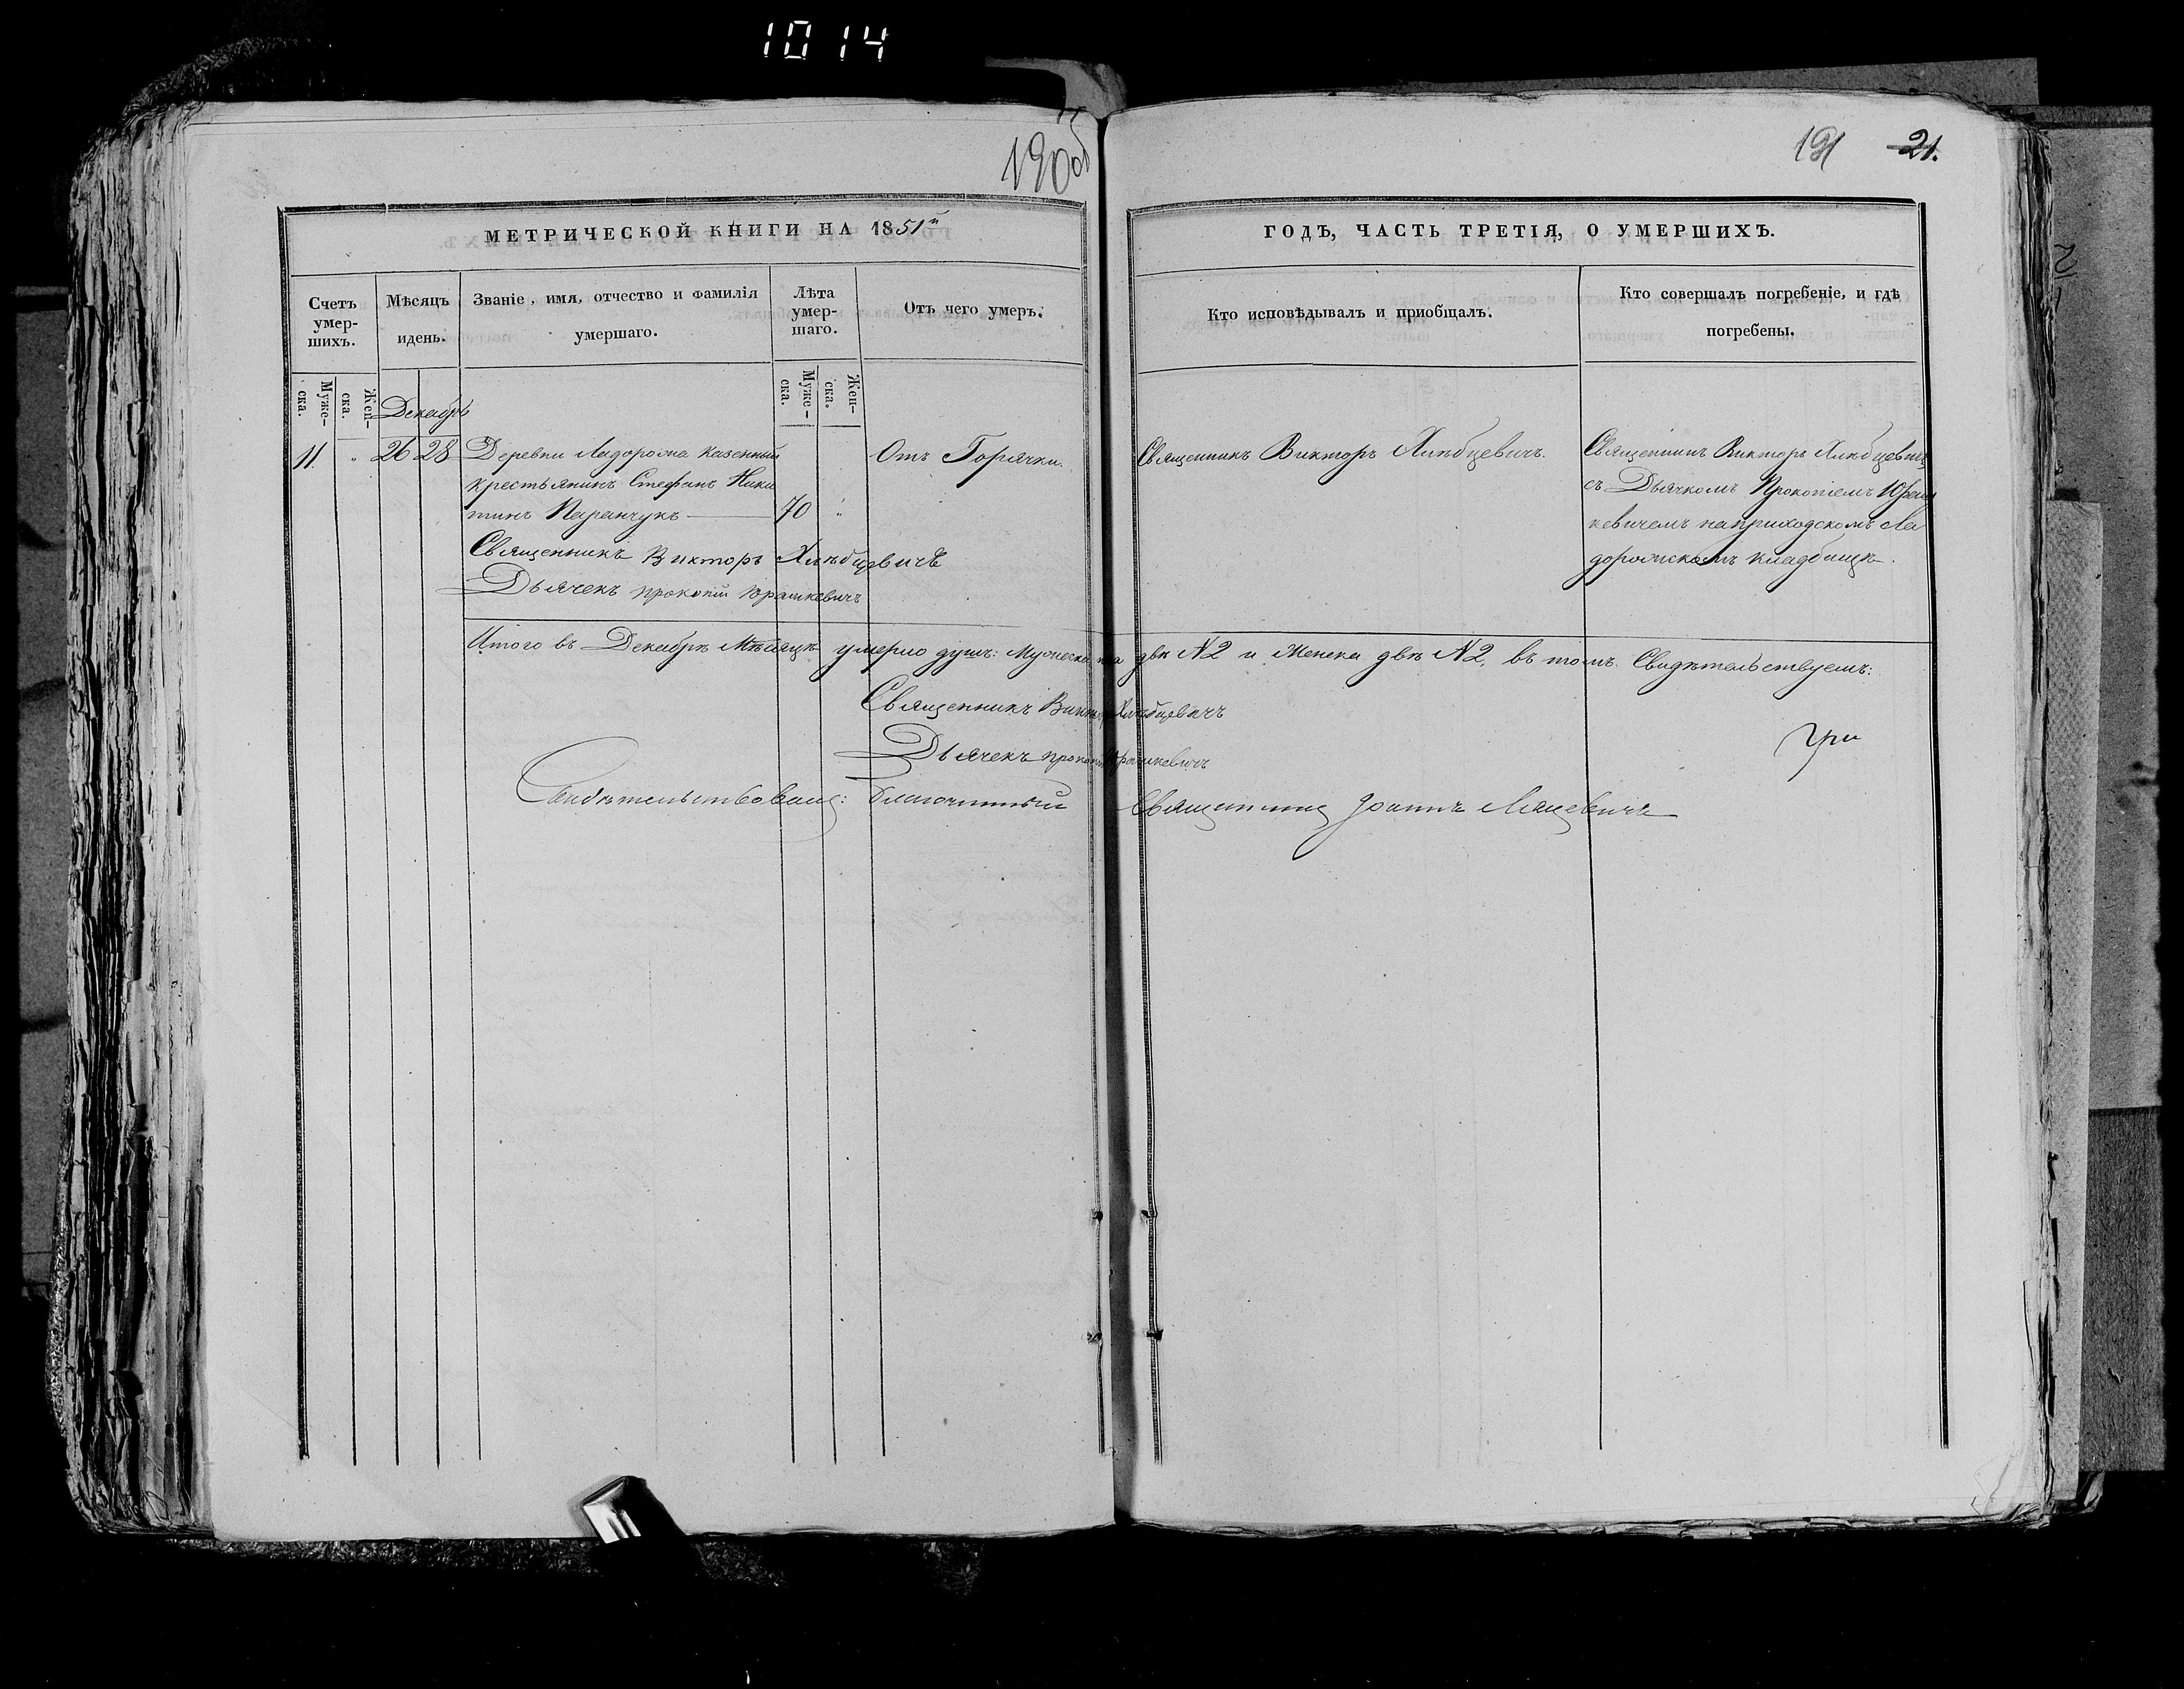 1014
190об
191 21.
МЕТРИЧЕСКОЙ КНИГИ НА 1851й
ГОДЪ, ЧАСТЬ ТРЕТІЯ, О УМЕРШИХЪ.
Счетъ умер-шихъ.
Мѣсяцъ идень.
Званіе, имя, отчество и фамилія умершаго.
Лѣта умер-шаго.
Отъ чего умеръ.
Кто исповѣдывалъ и пріобщалъ.
Кто совершалъ погребеніе, и гдѣ погребены.
Муже-ска.
Жен-ска.
Муже-ска.
Жен-ска.
Декабрь
11. " 26 28
Деревни Ладорожа казенный
крестьянинъ Стефанъ Ники
тинъ Паранчукъ 70 "
Отъ Горячки.
Священникъ Викторъ Хлѣбцевичъ.
Священникъ Викторъ Хлѣбцевичъ
съ Дьячкомъ Прокопіемъ Юраш
кевичемъ наприходскомъ Ла
дорожскомъ кладбищѣ.
Священникъ Викторъ Хлѣбцевичъ
Дьячекъ прокопій Юрашкевичъ
Итого въ Декабрѣ Мѣсяцѣ умерло душъ: Мужеска пола двѣ №2 и Женска двѣ №2, въ томъ Свидѣтельствуемъ:
Священникъ Викторъ Хлѣбцевичъ
Дьячекъ прокопій Юрашкевичъ
Три
Свидѣтельствовалъ: Благочинный Священникъ Іоаннъ